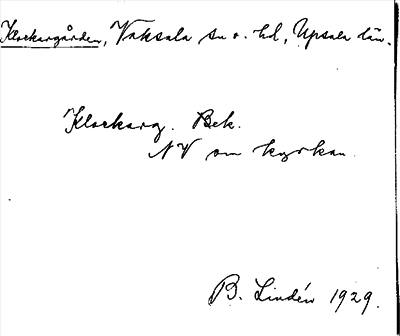 Klockargården, Vaksala sn o. hd, Upsala län.
Klockarg. Bek.
NV om kyrkan.
B. Lindén 1929.